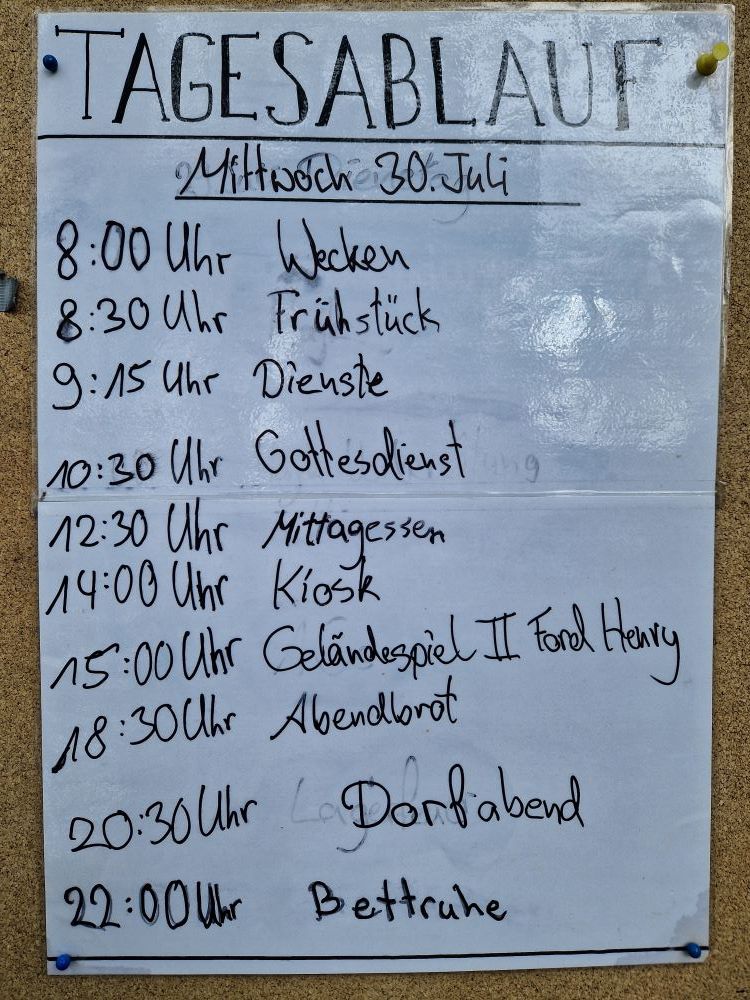 TAGESABLAUF
Mittwoch 30. Juli
8:00 Uhr Wecken
8:30 Uhr Frühstück
9:15 Uhr Dienste
10:30 Uhr Gottesdienst
12:30 Uhr Mittagessen
14:00 Uhr Kiosk
15:00 Uhr Geländespiel II Ford Henry
18:30 Uhr Abendbrot
20:30 Uhr Dorfabend
22:00 Uhr Bettruhe